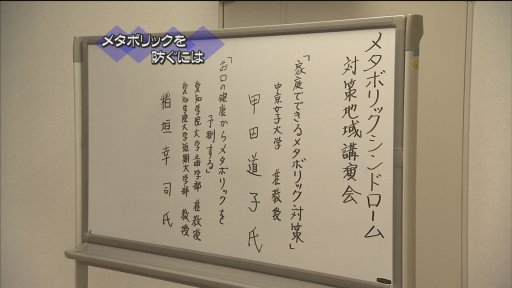 メタボリックを
防ぐには
メタボリックシンドローム
対策地域講演会
「家庭でできるメタボリック対策」
中京女子大学 准教授
甲田道子氏
「お口の健康からメタボリックを
予測する」
愛知学院大学歯学部 准教授
愛知学院大学短期大学部 教授
稲垣幸司氏